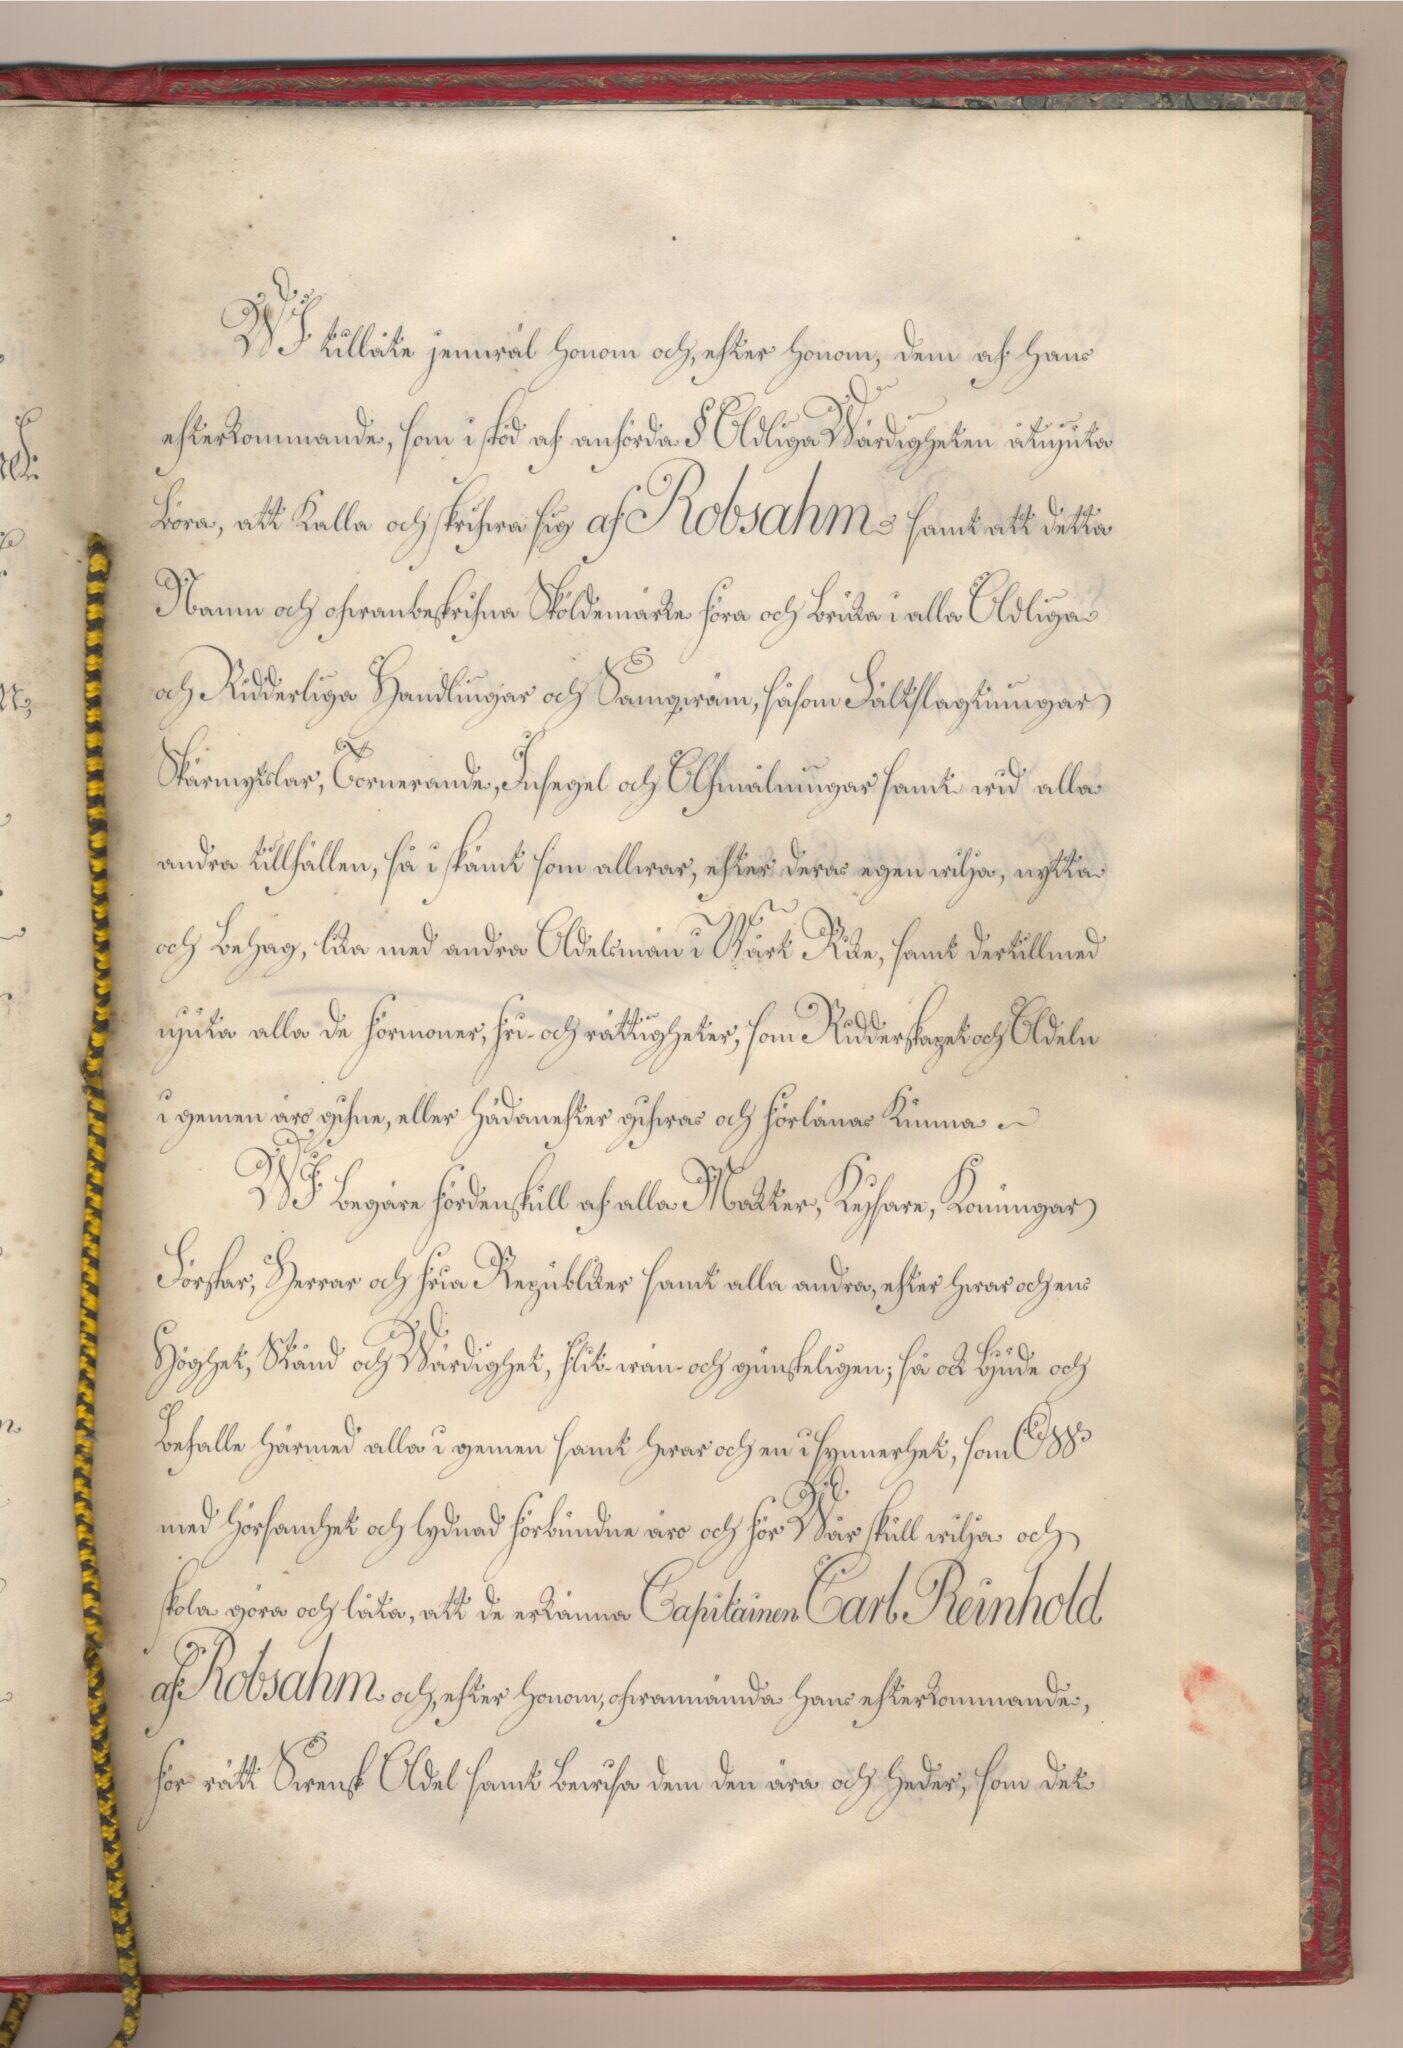 WJ tillåte jemwäl honom och, efter honom, dem af hans
efterkommande, som i stöd af anförda § Adliga Wärdigheten åtnjuta
böra, att kalla och skrifwa sig af Robsahm samt att detta
Namn och ofwanbeskrifna Sköldemärke föra och bruka i alla Adliga
och Ridderliga Handlingar och Samqwäm, såsom Fältslagtningar
Skärmytslar, Tornerande, Insegel och Afmålningar samt wid alla
andra tillfällen, så i skämt som allwar, efter deras egen wilja, nytta
och behag, lika med andra Adelsmän i Wårt Rike, samt dertillmed
njuta alla de förmoner, fri- och rättigheter, som Ridderskapet och Adeln
i gemen äro gifne, eller hädanefter gifwas och förlänas kunna
WJ begäre fördenskull af alla Makter, Keysare, Konungar
Förstar, Herrar och fria Republiker samt alla andra, efter hwar och ens
Höghet, Stånd och Wärdighet, flit- wän- och gunsteligen; så ock bjude och
befalle härmed alla i gemen samt hwar och en i synnerhet, som Oss
med hörsamhet och lydnad förbundne äro och för Wår skull wilja och
skola göra och låta, att de erkänna Capitainen Carl Reinhold
af Robsahm och, efter honom, ofwannämda hans efterkommande,
för rätt Swensk Adel samt bewisa dem den ära och heder, som det